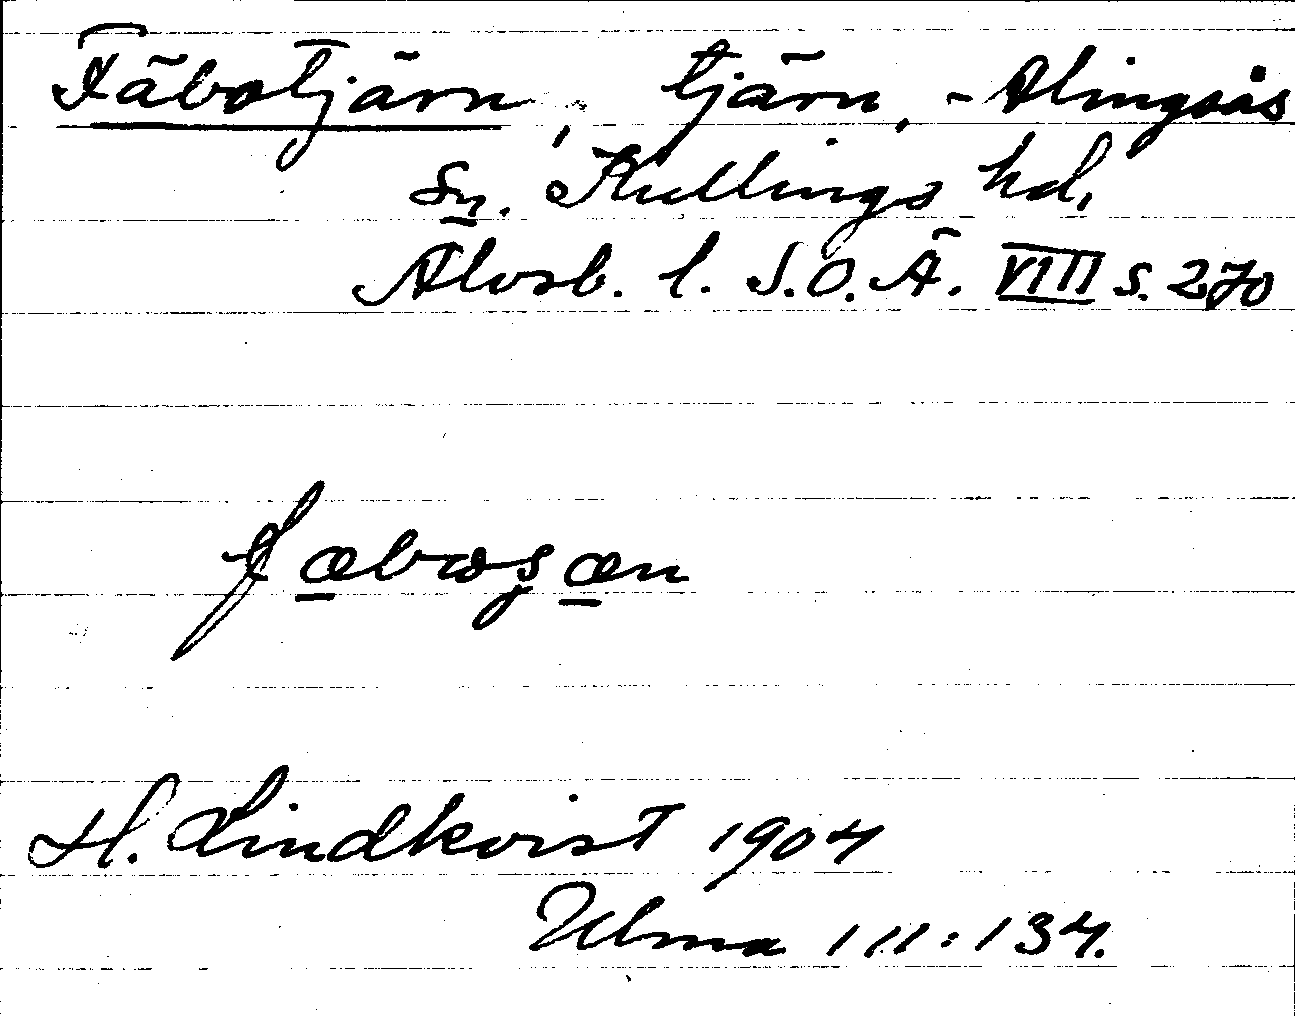 Fäbotjärn, tjärn, - Alingsås
sn. Kullings hd,
Älvsb. l. S.O.Ä. VIII s. 270
H. Lindkvist 1904
Ulma 111:134.